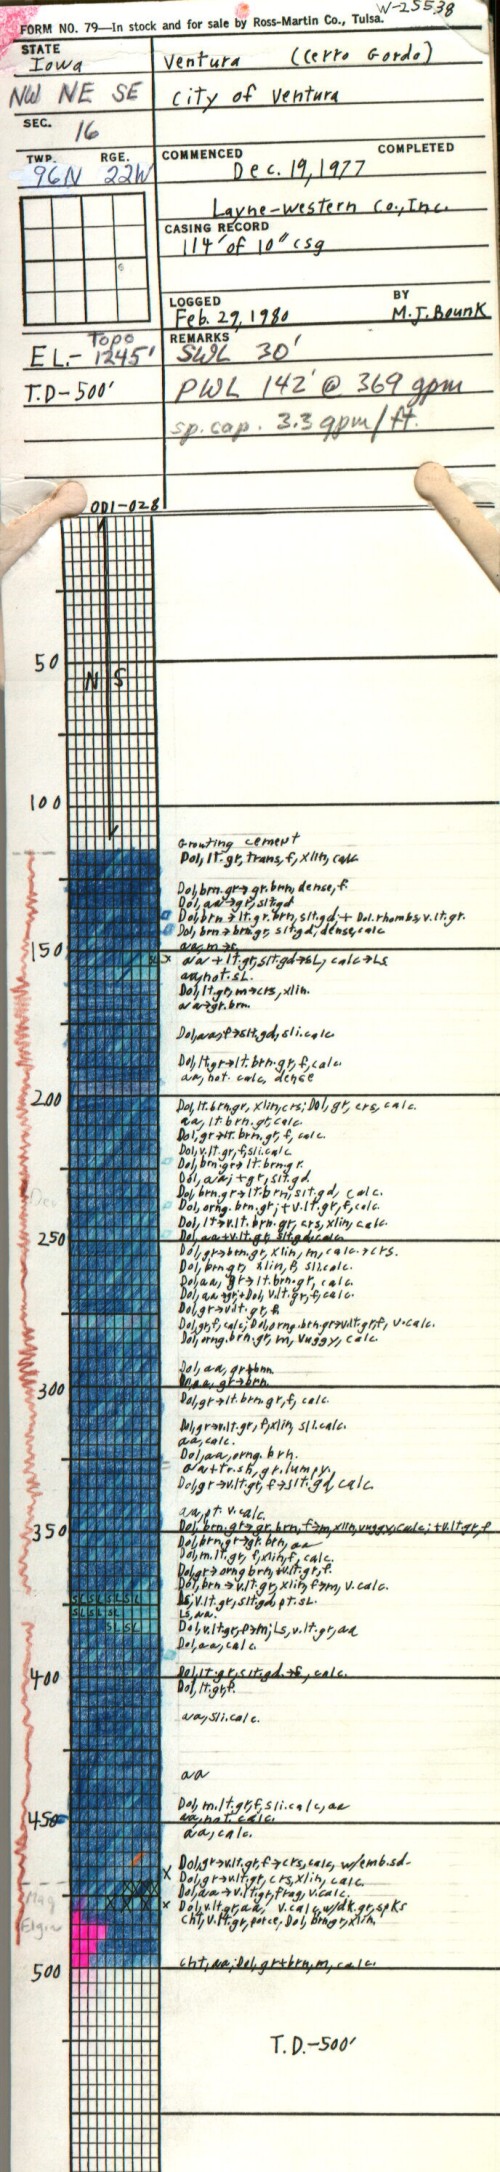 W-25538
FORM NO. 79—In stock and for sale by Ross-Martin Co., Tulsa.
STATE
Iowa
Ventura (Cerro Gordo)
NW NE SE
City of Ventura
SEC.
16
TWP. RGE.
96N 22W
COMMENCED COMPLETED
Dec. 19, 1977
Layne-Western Co., Inc.
CASING RECORD
114' of 10" csg
LOGGED BY
Feb. 29, 1980 M.J. Bounk
EL.- Topo 1245'
REMARKS
SWL 30'
T.D-500'
PWL 142' @ 369 gpm
sp. cap. 3.3 gpm/ft.
001-028
50
N S
100
Grouting cement
Dol, lt.gr, trans, f, xlin, calc
Dol, brn.gr→gr.brn, dense, f.
Dol, aa→gr, slt.gd
Dol, brn→lt.gr.brn, slt.gd, + Dol. rhombs, v.lt.gr.
Dol, brn→brn.gr, slt.gd, dense, calc
aa, m→c.
150
SL x
aa + lt.gr, slt.gd→SL, calc→LS
aa, not SL.
Dol, lt.gr, m→crs, xlin.
aa→gr.brn.
Dol, aa, f→slt.gd, sli.calc
Dol, lt.gr→lt.brn.gr, f, calc.
aa, not calc, dense
200
Dol, lt.brn.gr, xlin, crs; Dol, gr, crs, calc.
aa, lt.brn.gr, calc.
Dol, gr→lt.brn.gr, f, calc.
Dol, v.lt.gr, f, sli.calc
Dol, brn.gr→lt.brn.gr.
Dol, aa; + gr, slt.gd.
Dol, brn.gr→lt.brn, slt.gd, calc.
Dev
Dol, orng.brn.gr; + v.lt.gr, f, calc.
Dol, lt→v.lt.brn.gr, crs, xlin, calc
Dol, aa + v.lt.gr, slt.gd, calc
250
Dol, gr→brn.gr, xlin, m, calc→crs.
Dol, brn.gr, xlin, f, sli.calc.
Dol, aa, gr→lt.brn.gr, calc.
Dol, aa→gr; + Dol, v.lt.gr, f, calc.
Dol, gr→v.lt.gr, f
Dol, gr, f, calc; Dol, orng.brn.gr→v.lt.gr, f, v.calc.
Dol, orng.brn.gr, m, vuggy, calc.
Dol, aa, gr+brn
gr→brn.
300
Dol, gr→lt.brn.gr, f, calc.
Dol, gr→v.lt.gr, f, xlin, sli.calc.
aa, calc.
Dol, aa, orng.brn.
aa + tr.sh, gr.lumpy.
Dol, gr→v.lt.gr, f→slt.gd calc.
aa, pt. v.calc.
350
Dol, brn.gr→gr.brn, f→m, xlin, vuggy, calc; + v.lt.gr, f
Dol, brn.gr→gr.brn, aa
Dol, m.lt.gr, f, xlin, f, calc.
Dol, gr→orng brn, + v.lt.gr, f.
Dol, brn→v.lt.gr, xlin, f→m, v.calc.
SL SL SL SL
LS, v.lt.gr, slt.gd, pt.SL.
SL SL SL
LS, aa.
SL SL
Dol, v.lt.gr, f→m; LS, v.lt.gr, aa
Dol, aa, calc.
400
Dol, lt.gr, slt.gd→f, calc.
Dol, lt.gr, f.
aa, sli.calc.
aa
Dol, m.lt.gr, f, sli.calc, aa
450
aa, not calc.
aa, calc.
Dol, gr→v.lt.gr, f→crs, calc, w/emb.sd-
x
Dol, gr→v.lt.gr, crs, xlin, calc.
Maq
Dol, aa→v.lt.gr, frag, v.calc.
x
Dol, v.lt.gr, aa, v.calc, w/dk.gr, spks
Elgin
Cht, v.lt.gr, porce, Dol, brn.gr, xlin,
500
Cht, aa; Dol, gr+brn, m, calc.
T.D.-500'